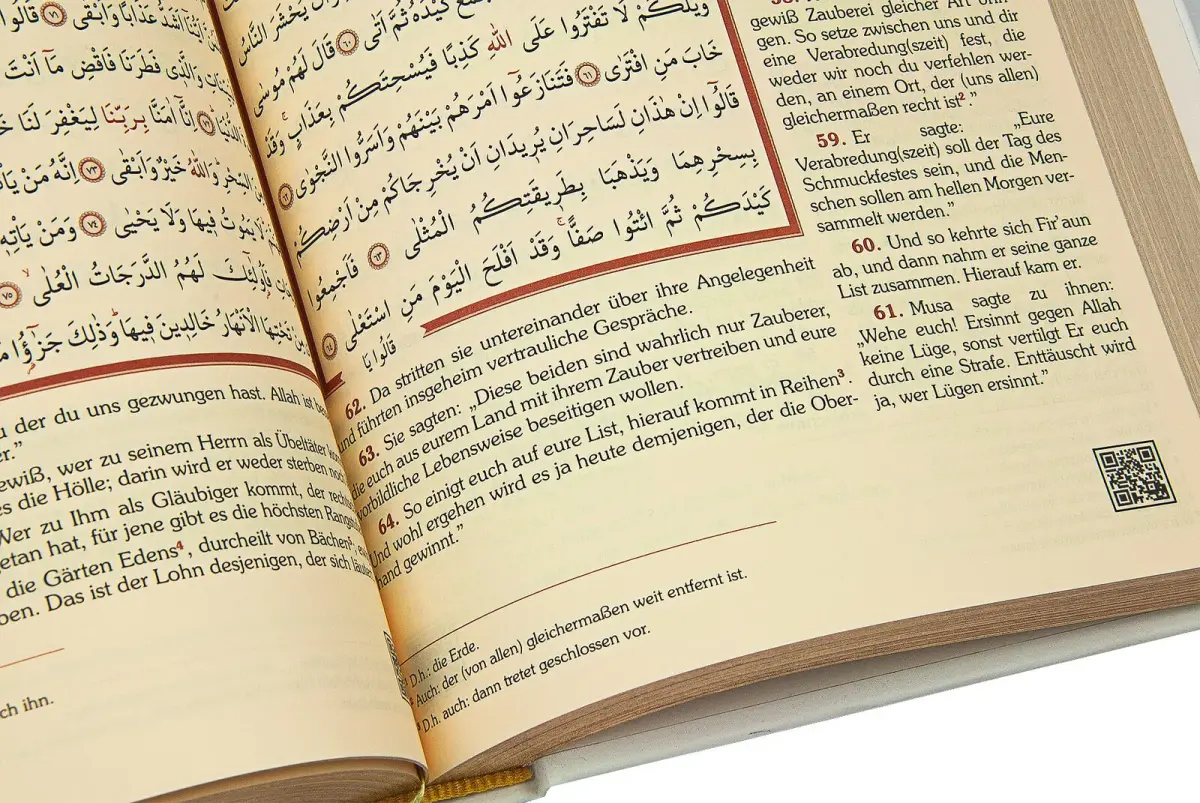 اَشَدُّ عَذَابًا وَاَبْقٰى ﴿٧١﴾ قَالُوا
وَالَّذٖى فَطَرَنَا فَاقْضِ مَٓا اَنْتَ
اِنَّٓا اٰمَنَّا بِرَبِّنَا لِيَغْفِرَ لَنَا
السِّحْرِ وَاللّٰهُ خَيْرٌ وَاَبْقٰى ﴿٧٣﴾ اِنَّهُ مَنْ يَاْتِ
لَا يَمُوتُ فٖيهَا وَلَا يَحْيٰى ﴿٧٤﴾ وَمَنْ يَاْتِهٖ
فَاُولٰٓئِكَ لَهُمُ الدَّرَجَاتُ الْعُلٰى ﴿٧٥﴾
تَحْتِهَا الْاَنْهَارُ خَالِدٖينَ فٖيهَا وَذٰلِكَ جَزٰٓؤُا
u der du uns gezwungen hast. Allah ist
er.”
ewiß, wer zu seinem Herrn als Übeltäter
es die Hölle; darin wird er weder sterben
Wer zu Ihm als Gläubiger kommt, der
getan hat, für jene gibt es die höchsten
die Gärten Edens⁴, durcheilt von Bächen
ben. Das ist der Lohn desjenigen, der sich
ch ihn.
يُحْشَرَ النَّاسُ
كَيْدَهُ ثُمَّ اَتٰى ﴿٦٠﴾ قَالَ لَهُمْ مُوسٰى
وَيْلَكُمْ لَا تَفْتَرُوا عَلَى اللّٰهِ كَذِبًا فَيُسْحِتَكُمْ بِعَذَابٍ وَقَدْ
خَابَ مَنِ افْتَرٰى ﴿٦١﴾ فَتَنَازَعُٓوا اَمْرَهُمْ بَيْنَهُمْ وَاَسَرُّوا النَّجْوٰى ﴿٦٢﴾
قَالُٓوا اِنْ هٰذَانِ لَسَاحِرَانِ يُرٖيدَانِ اَنْ يُخْرِجَاكُمْ مِنْ اَرْضِكُمْ
بِسِحْرِهِمَا وَيَذْهَبَا بِطَرٖيقَتِكُمُ الْمُثْلٰى ﴿٦٣﴾ فَاَجْمِعُوا
كَيْدَكُمْ ثُمَّ ائْتُوا صَفًّا وَقَدْ اَفْلَحَ الْيَوْمَ مَنِ اسْتَعْلٰى ﴿٦٤﴾
قَالُوا يَا
gewiß Zauberei gleicher Art
gen. So setze zwischen uns und dir
eine Verabredung(szeit) fest, die
weder wir noch du verfehlen wer-
den, an einem Ort, der (uns allen)
gleichermaßen recht ist².”
59. Er sagte: „Eure
Verabredung(szeit) soll der Tag des
Schmuckfestes sein, und die Men-
schen sollen am hellen Morgen ver-
sammelt werden.”
60. Und so kehrte sich Fir’aun
ab, und dann nahm er seine ganze
List zusammen. Hierauf kam er.
61. Musa sagte zu ihnen:
„Wehe euch! Ersinnt gegen Allah
keine Lüge, sonst vertilgt Er euch
durch eine Strafe. Enttäuscht wird
ja, wer Lügen ersinnt.”
62. Da stritten sie untereinander über ihre Angelegenheit
und führten insgeheim vertrauliche Gespräche.
63. Sie sagten: „Diese beiden sind wahrlich nur Zauberer,
die euch aus eurem Land mit ihrem Zauber vertreiben und eure
vorbildliche Lebensweise beseitigen wollen.
64. So einigt euch auf eure List, hierauf kommt in Reihen³.
Und wohl ergehen wird es ja heute demjenigen, der die Ober-
hand gewinnt.”
D.h.: die Erde.
² Auch: der (von allen) gleichermaßen weit entfernt ist.
³ D.h. auch: dann tretet geschlossen vor.